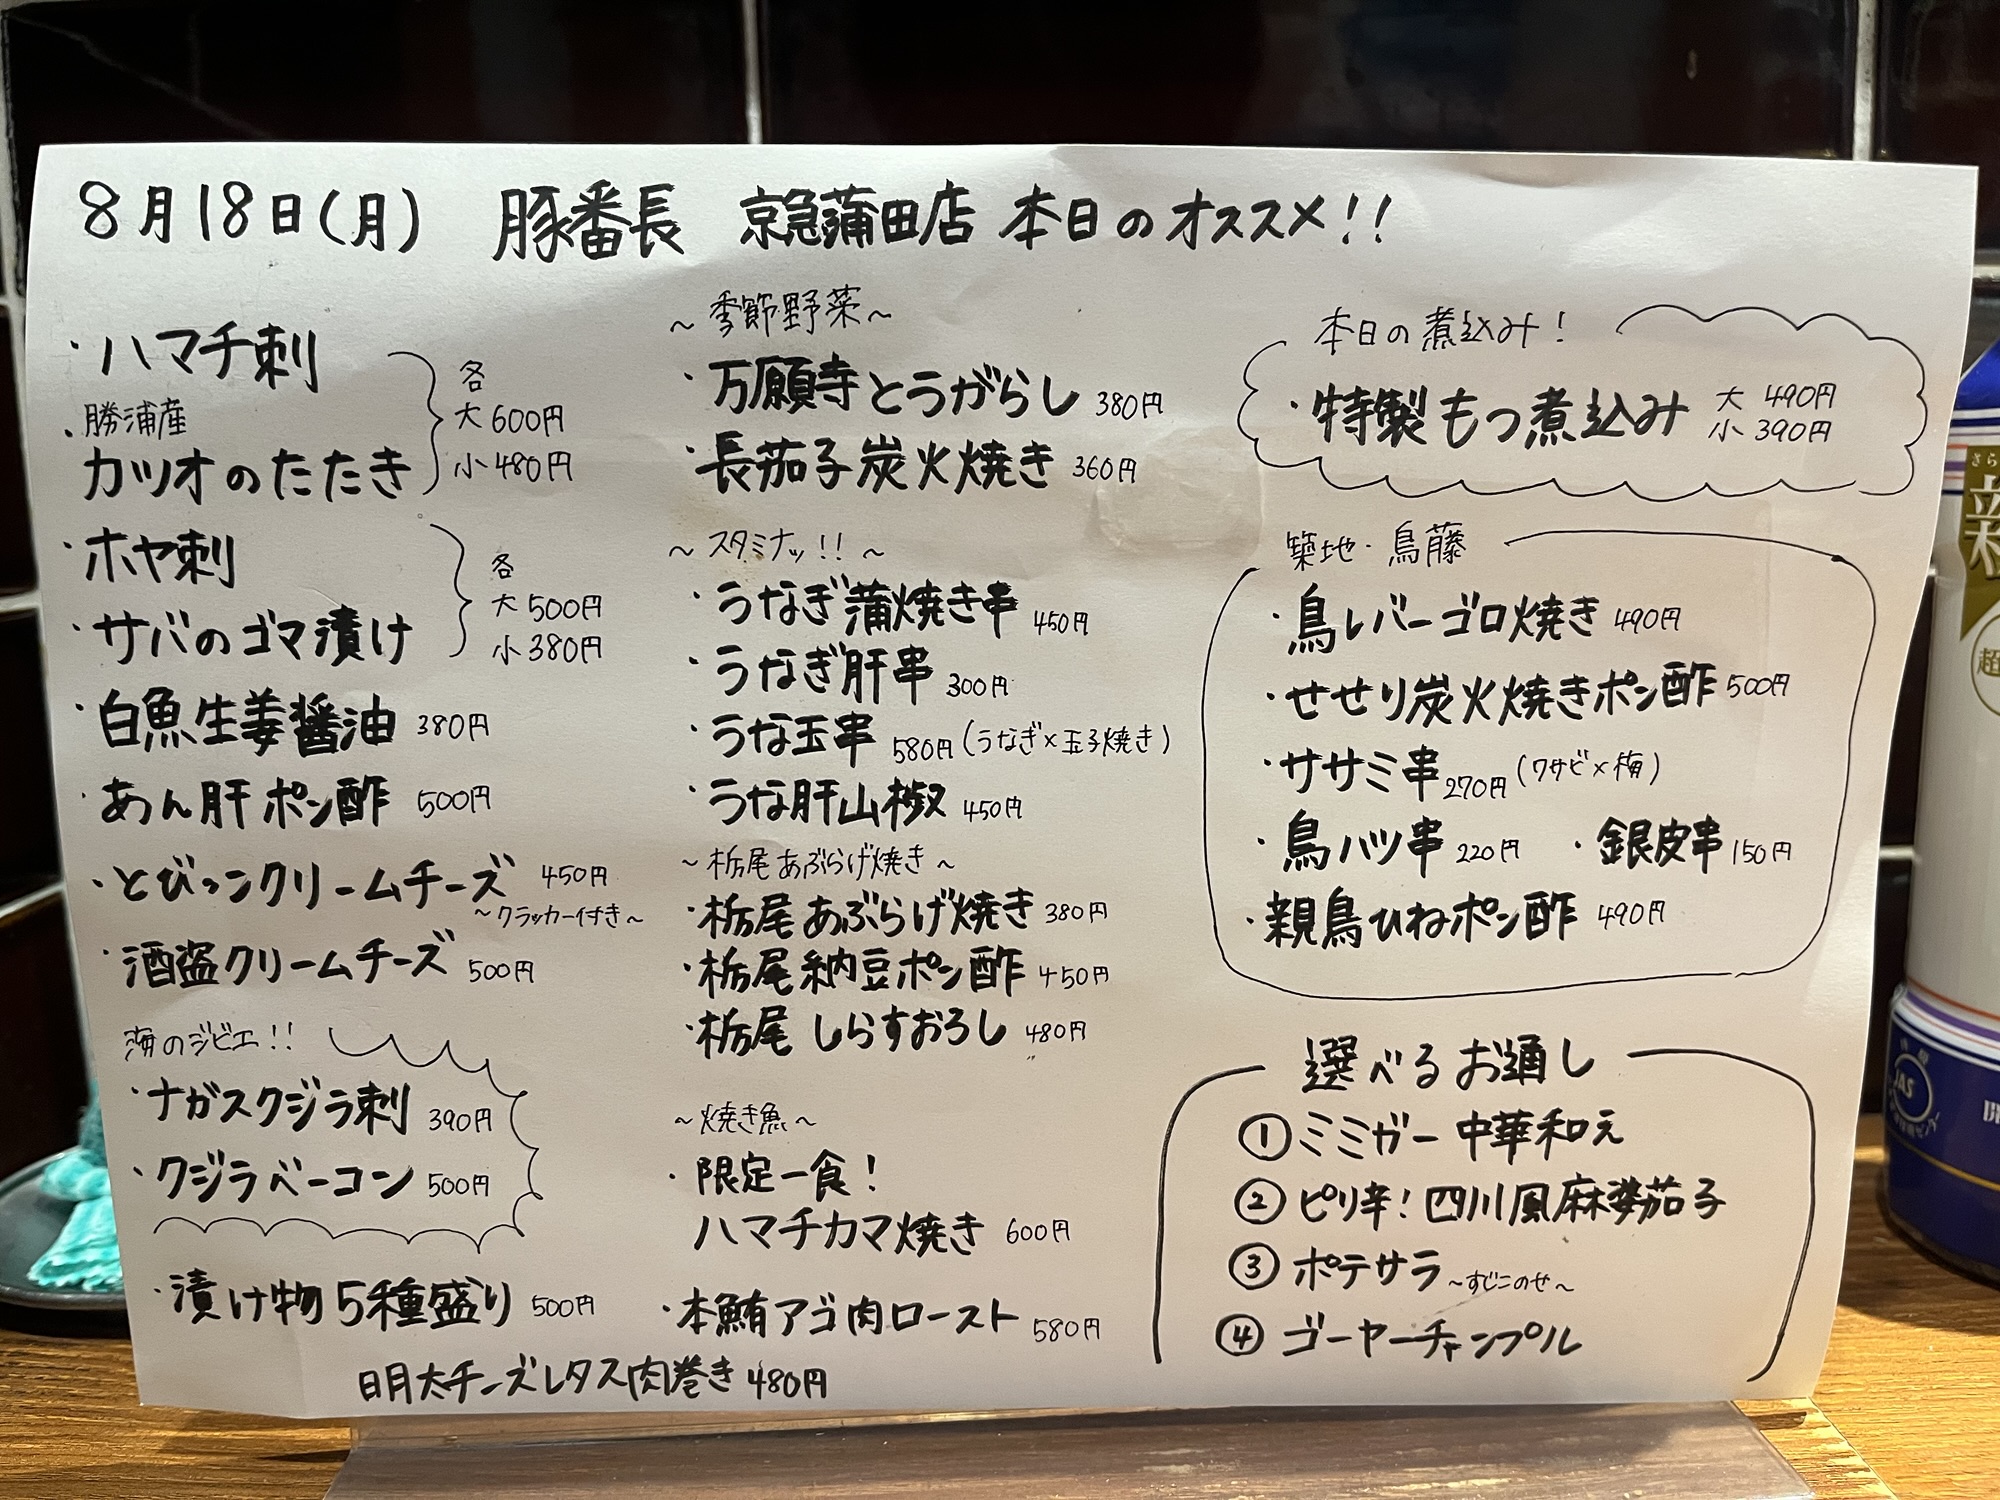 8月18日(月) 豚番長 京急蒲田店 本日のオススメ!!
・ハマチ刺
・勝浦産
カツオのたたき
各
大 600円
小 480円
・ホヤ刺
・サバのゴマ漬け
各
大 500円
小 380円
・白魚生姜醤油 380円
・あん肝ポン酢 500円
・とびっコンクリームチーズ 450円
~クラッカー付き~
・酒盗クリームチーズ 500円
海のジビエ!!
・ナガスクジラ刺 390円
・クジラベーコン 500円
・漬け物5種盛り 500円
明太チーズレタス肉巻き 480円
~季節野菜~
・万願寺とうがらし 380円
・長茄子炭火焼き 360円
~スタミナッ!!~
・うなぎ蒲焼き串 450円
・うなぎ肝串 300円
・うな玉串 580円(うなぎ×玉子焼き)
・うな肝山椒 450円
~栃尾あぶらげ焼き~
・栃尾あぶらげ焼き 380円
・栃尾納豆ポン酢 450円
・栃尾しらすおろし 480円
~焼き魚~
・限定一食!
ハマチカマ焼き 600円
・本鮪アゴ肉ロースト 580円
本日の煮込み!
・特製もつ煮込み 大 490円
小 390円
築地・鳥藤
・鳥レバーゴロ焼き 490円
・せせり炭火焼きポン酢 500円
・ササミ串 270円(ワサビ×梅)
・鳥ハツ串 220円 ・銀皮串 150円
・親鳥ひねポン酢 490円
選べるお通し
① ミミガー中華和え
② ピリ辛!四川風麻婆茄子
③ ポテサラ ~すじこのせ~
④ ゴーヤーチャンプル
JAS